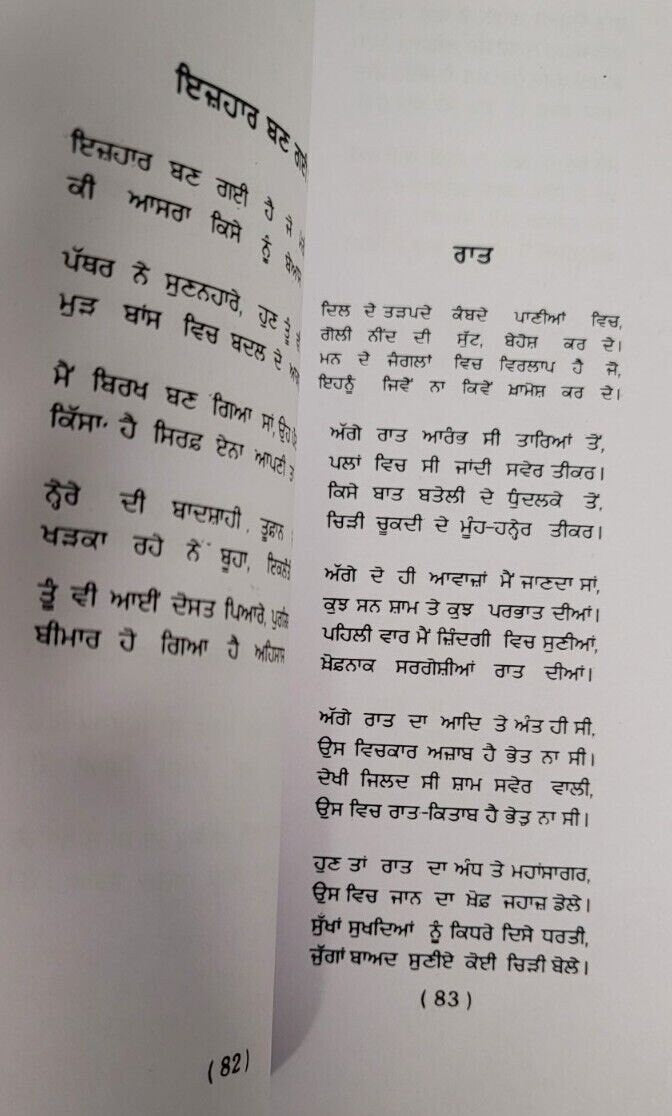 ਇਜ਼ਹਾਰ ਬਣ ਗਈ
ਇਜ਼ਹਾਰ ਬਣ ਗਈ ਹੈ ਜੋ
ਕੀ ਆਸਰਾ ਕਿਸੇ ਨੂੰ
ਪੱਥਰ ਨੇ ਸੁਣਨਹਾਰੇ, ਹੁਣ ਤੂੰ
ਮੁੜ ਬਾਂਸ ਵਿਚ ਬਦਲ ਦੇ
ਮੈਂ ਬਿਰਖ ਬਣ ਗਿਆ ਸਾਂ,
ਕਿੱਸਾ ਹੈ ਸਿਰਫ਼ ਏਨਾ ਆਪਣੀ
ਨ੍ਹੇਰੇ ਦੀ ਬਾਦਸ਼ਾਹੀ, ਤੂਫ਼ਾਨ
ਖੜਕਾ ਰਹੇ ਨੇ ਬੂਹਾ,
ਤੂੰ ਵੀ ਆਈਂ ਦੋਸਤ ਪਿਆਰੇ,
ਬੀਮਾਰ ਹੋ ਗਿਆ ਹੈ ਅਹਿਸਾਸ
(82)
ਰਾਤ
ਦਿਲ ਦੇ ਤੜਪਦੇ ਕੰਬਦੇ ਪਾਣੀਆਂ ਵਿਚ,
ਗੋਲੀ ਨੀਂਦ ਦੀ ਸੁੱਟ, ਬੇਹੋਸ਼ ਕਰ ਦੇ।
ਮਨ ਦੇ ਜੰਗਲਾਂ ਵਿਚ ਵਿਰਲਾਪ ਹੈ ਜੋ,
ਇਹਨੂੰ ਜਿਵੇਂ ਨਾ ਕਿਵੇਂ ਖ਼ਾਮੋਸ਼ ਕਰ ਦੇ।
ਅੱਗੇ ਰਾਤ ਆਰੰਭ ਸੀ ਤਾਰਿਆਂ ਤੋਂ,
ਪਲਾਂ ਵਿਚ ਸੀ ਜਾਂਦੀ ਸਵੇਰ ਤੀਕਰ।
ਕਿਸੇ ਬਾਤ ਬਤੋਲੀ ਦੇ ਧੁੰਦਲਕੇ ਤੋਂ,
ਚਿੜੀ ਚੂਕਦੀ ਦੇ ਮੂੰਹ-ਹਨ੍ਹੇਰ ਤੀਕਰ।
ਅੱਗੇ ਦੋ ਹੀ ਆਵਾਜ਼ਾਂ ਮੈਂ ਜਾਣਦਾ ਸਾਂ,
ਕੁਝ ਸਨ ਸ਼ਾਮ ਤੇ ਕੁਝ ਪਰਭਾਤ ਦੀਆਂ।
ਪਹਿਲੀ ਵਾਰ ਮੈਂ ਜ਼ਿੰਦਗੀ ਵਿਚ ਸੁਣੀਆਂ,
ਖ਼ੋਫ਼ਨਾਕ ਸਰਗੋਸ਼ੀਆਂ ਰਾਤ ਦੀਆਂ।
ਅੱਗੇ ਰਾਤ ਦਾ ਆਦਿ ਤੇ ਅੰਤ ਹੀ ਸੀ,
ਉਸ ਵਿਚਕਾਰ ਅਜ਼ਾਬ ਹੈ ਭੇਤ ਨਾ ਸੀ।
ਦੇਖੀ ਜਿਲਦ ਸੀ ਸ਼ਾਮ ਸਵੇਰ ਵਾਲੀ,
ਉਸ ਵਿਚ ਰਾਤ-ਕਿਤਾਬ ਹੈ ਭੇਤ ਨਾ ਸੀ।
ਹੁਣ ਤਾਂ ਰਾਤ ਦਾ ਅੰਧ ਤੇ ਮਹਾਂਸਾਗਰ,
ਉਸ ਵਿਚ ਜਾਨ ਦਾ ਖ਼ੋਫ਼ ਜਹਾਜ਼ ਡੋਲੇ।
ਸੁੱਖਾਂ ਸੁਖਦਿਆਂ ਨੂੰ ਕਿਧਰੇ ਦਿਸੇ ਧਰਤੀ,
ਜੁੱਗਾਂ ਬਾਅਦ ਸੁਣੀਏ ਕੋਈ ਚਿੜੀ ਬੋਲੇ।
(83)